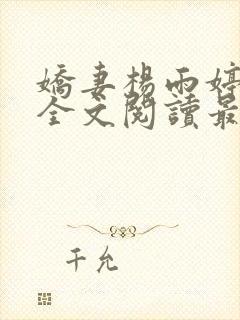 嬌妻楊雨婷
全文閱讀最
千允